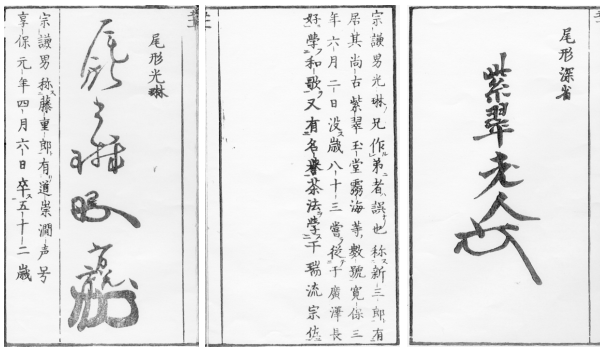 尾形深省
紫翠老人
宗謙男光琳兄作弟者誤也称新三郎有
居其尚古紫翠玉堂霧海等數號寛保三
年六月二日没歳八十三嘗従于廣澤長
好学和歌又有名誉茶法学于瑞流宗佐
尾形光琳
宗謙男称藤重郎有道崇澗声号
享保元年四月六日卒五十二歳